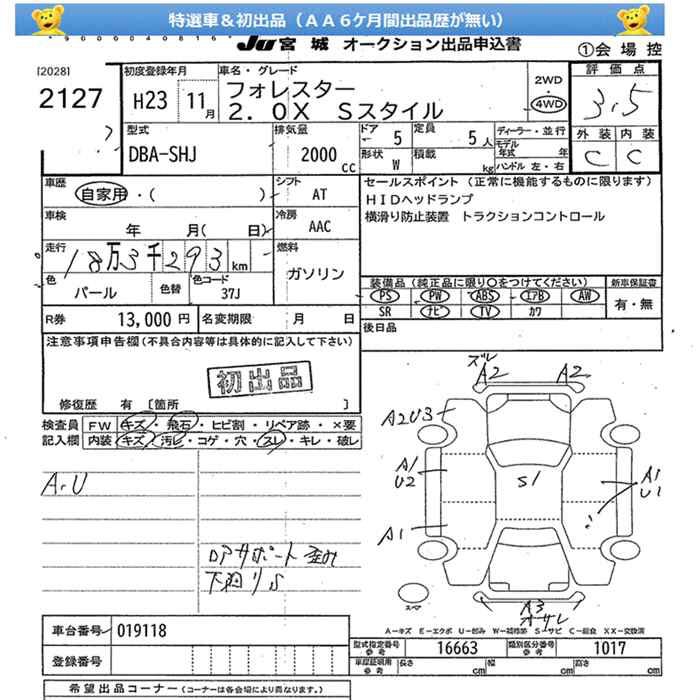 特選車＆初出品（ＡＡ６ケ月間出品歴が無い）
JU 宮 城 オークション出品申込書
①会 場 控
[2028]
2127
初度登録年月
H23 11 月
車名・グレード
フォレスター
2．0X Sスタイル
2WD
・
4WD
評 価 点
3.5
外 装 内 装
C C
型式
DBA-SHJ
排気量
2000 CC
ドア 5
定員 5 人
形状 W
積載 kg
ディーラー・並行
モデル年式 年
ハンドル 左・右
車歴
自家用・( )
シフト
AT
車検
年 月( 日)
冷房
AAC
走行
18万3千293 km
燃料
ガソリン
色
パール
色替
色コード
37J
R券 13,000 円
名変期限 月 日
セールスポイント（正常に機能するものに限ります）
HIDヘッドランプ
横滑り防止装置 トラクションコントロール
装備品（純正品に限り○をつけてください）
PS PW ABS エアB AW
SR ナビ TV カワ
新車保証書
有・無
後日品
注意事項申告欄（不具合内容等は具体的に記入して下さい）
初出品
修復歴 有 〔箇所 〕
検査員
記入欄
FW キズ・飛石・ヒビ割・リペア跡・×要
内装 キズ・汚レ・コゲ・穴・スレ・キレ・破レ
A.U
Dアサポート歪み
下廻りS
ズレ
A2 A2
A2U3
A1
U2
S1
A1
U1
A1
スペア
A3
オサレ
A－キズ E－エクボ U－凹み W－補修跡 S－サビ C－腐食 XX－交換済
車台番号 019118
登録番号
型式指定番号
参考
16663
類別区分番号
参考
1017
車庫証明用
参考
長さ cm 幅 cm 高さ cm
希望出品コーナー（コーナーは各会場により異なります。）